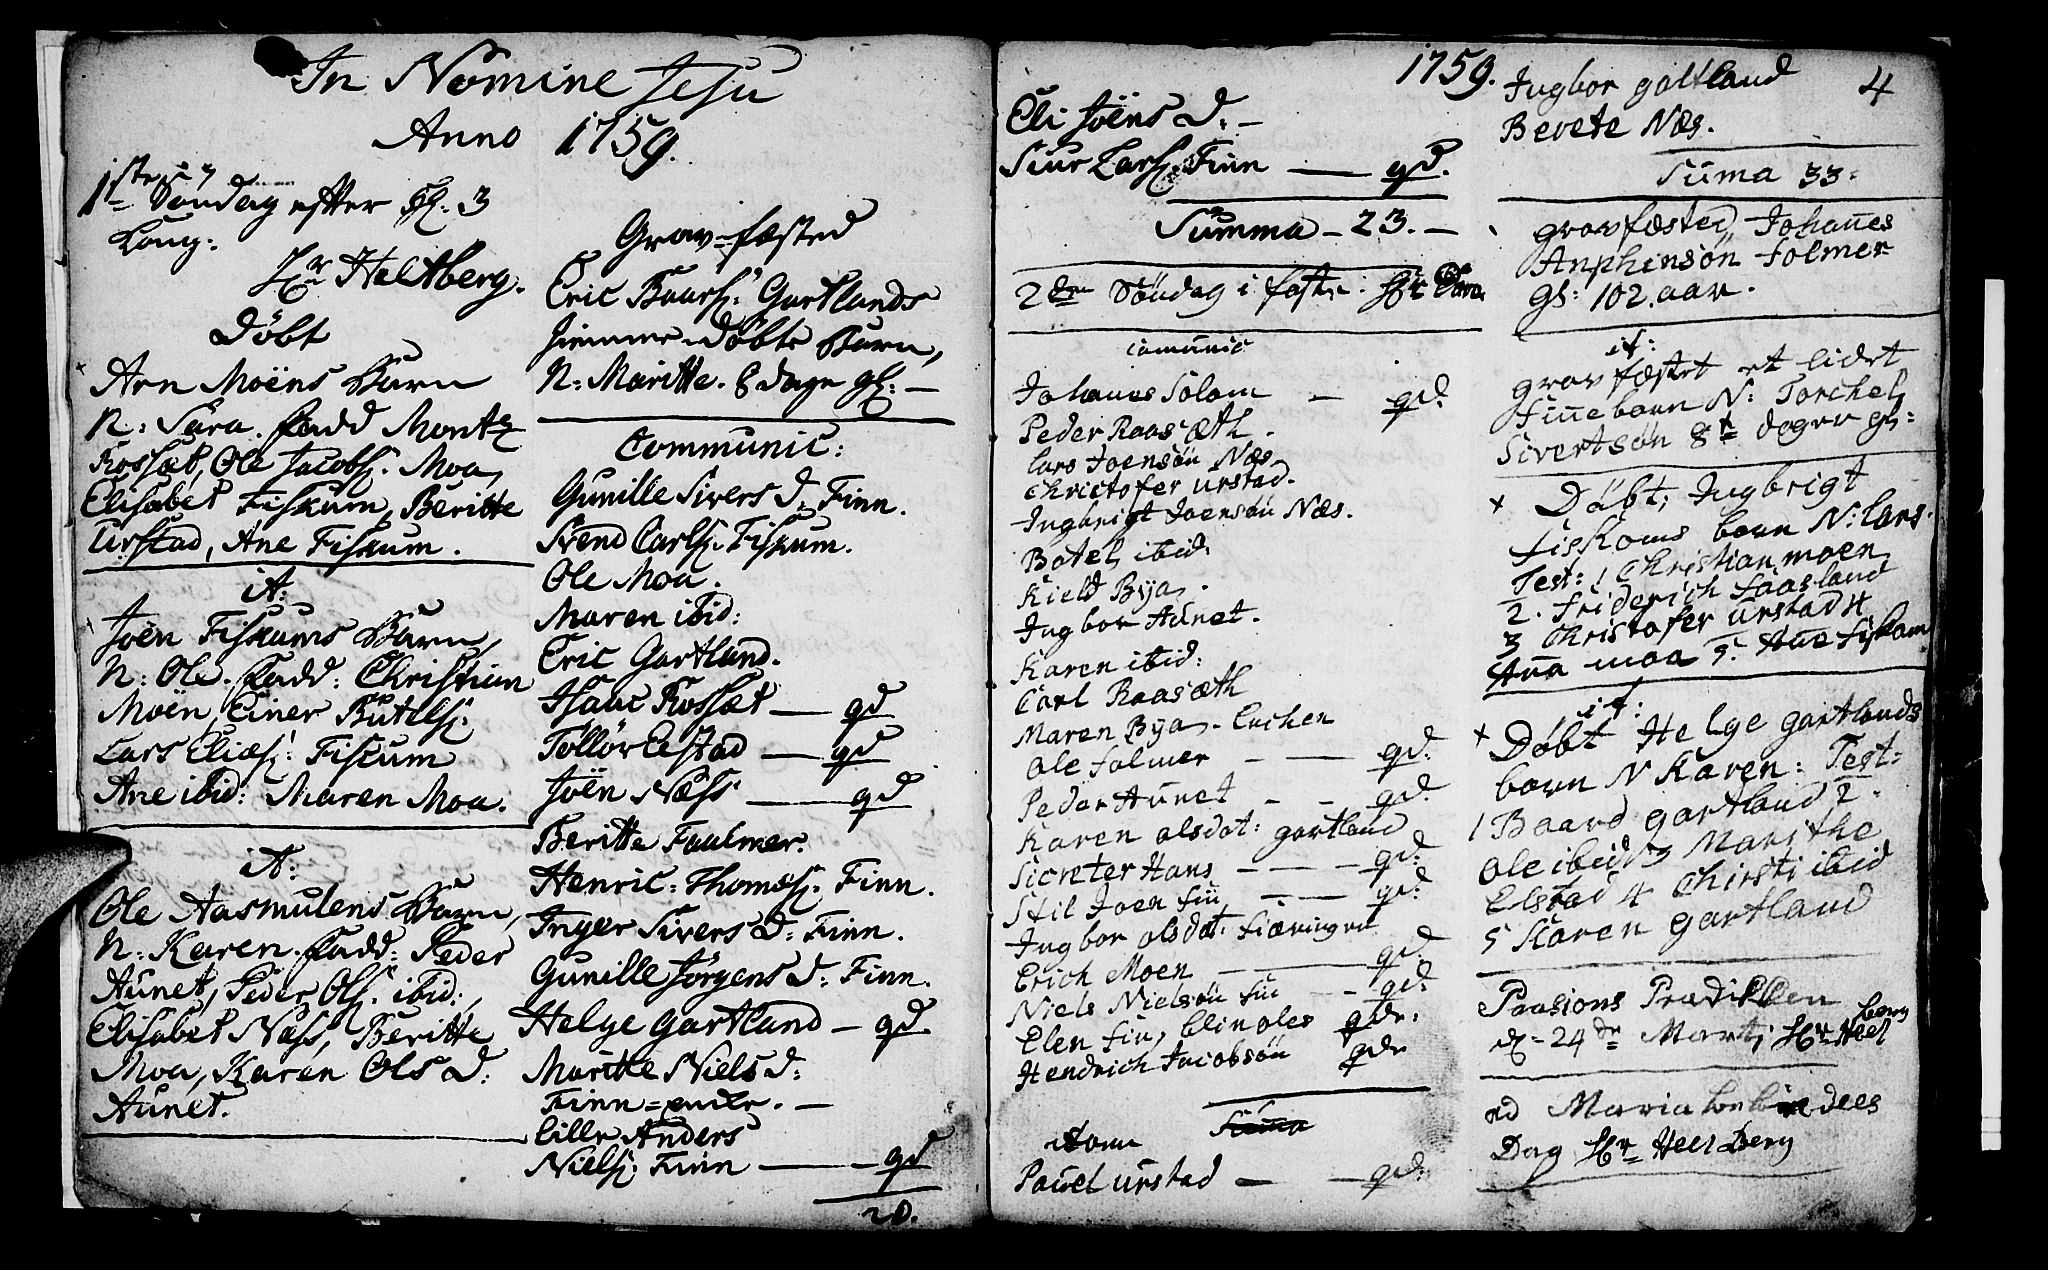 In Nomine Jesu
Anno 1759.
1ste Söndag efter H: 3
Kong:
Hr Heltberg.
Döbt
Arn Moëns Barn
N: Sara. Fadd Montz
Kossæt, Ole Jacobs: Moa,
Elisabet Fiskum, Beritte
Urstad, Ane Fiskum.
it:
Joën Fiskums Barn,
N: Ole. Fadd: Christian
Moën, Einer Bütels:
Lars Elias: Fiskum
Ane ibid: Maren Moa.
it:
Ole Aasmulens Barn,
N: Karen. Fadd: Peder
Aünet, Peder Ols: ibid:,
Elisabet Næss, Beritte
Moa, Karen Ols D:
Aünet.
Grav=fæsted
Eric Baars: Gartlands
hiemme-döbte Barn,
N: Maritte. 8 dage gl: —
Communic:
Gunille Sivers D: Finn.
Svend Carls: Fiskum.
Ole Moa.
Maren ibid:
Eric Gartland.
Isaac Kossæt — gd
Töllör Eestad — gd
Joën Næss — gd
Beritte Faulmer.
Henric: Thomæs: Finn.
Inger Sivers D: Finn.
Gunille Jörgens D: Finn.
Helge Gartland — gd.
Maritte Niels D:
Finn=enke. —
Lille Anders
Niels: Finn — gd
20.
1759.
Eli Joëns D: —
Siur Lars: Finn — gd.
Summa — 23. —
2den Söndag i faste: Hr
comunic
Johanes Solom — gd:
Peder Raasæth.
Lars Joensön Næs
Christofer urstad.
Ingbrigt Joensön Næs.
Botel ibid:
Kield Bya.
Ingbor Aunet.
Karen ibid:
Carl Raasæth
Maren Bya. Enchen
Ole folmer — gd:
Peder Aunet — gd:
Karen olsdat: gartland
Sicreter Hans — gd:
Stil Joen fin — gd:
Ingbor olsdat: fiæringen
Erich Moen — gd:
Niels Nielsön fin — gd:
Elen fin, blin oles gd:
Hendrich Jacobsön gd:
Suma
Pouel urstad — gd:
Ingbor galtland
Berete Næs.
Suma 33:
4
gravfæsted, Johanes
Anphinsön folmer
gl: 102. aar.
it:
gravfæstet et lidet
finne barn N: Torchel
Sivertsön 8te dager gl:
Döbt, Ingbrigt
fiskoms barn N: lars.
Test: 1 Christian moen
2. friderich faasland
3 Christofer urstad 4
Ana moa 5. Ane fiskom
it:
Döbt Helge gartlands
barn N Karen: Test:
1 Baard gartland 2.
Ole ibid 3 Marithe
Elstad 4 Chirsti ibid
5 Karen gartland
Pasions Prædiken
d= 24de Marti Hr Heel
berg
ad Maria bebüdels
Dag Hr Heel Berg